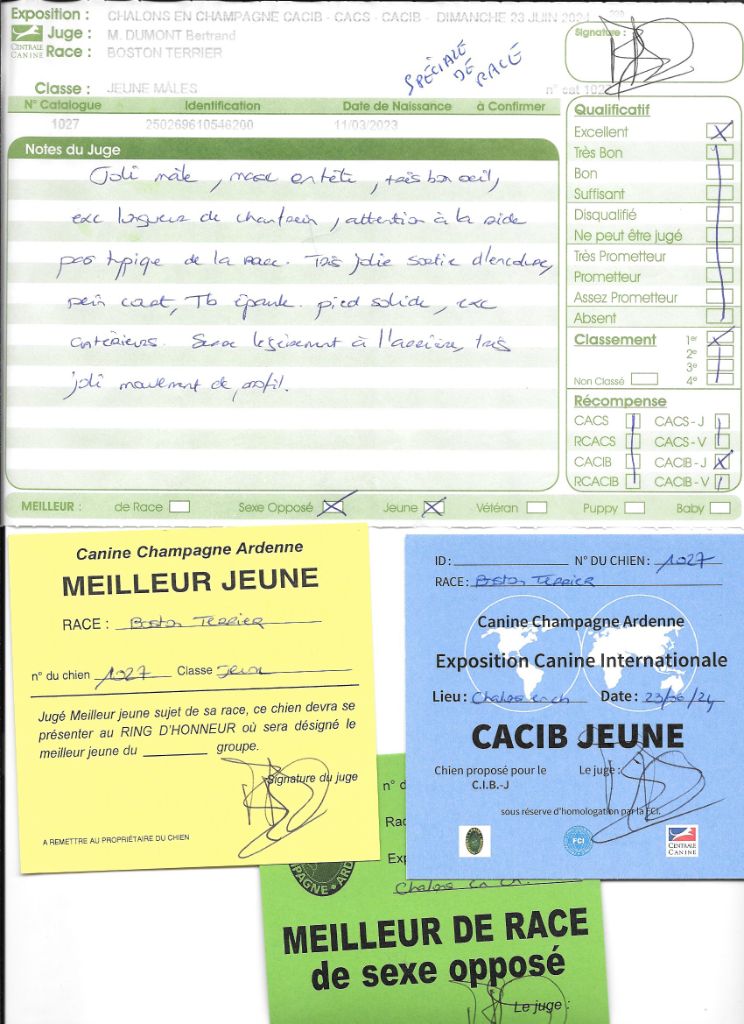 Exposition : CHALONS EN CHAMPAGNE CACIB - CACS - CACIB - DIMANCHE 23 JUIN 2024
CENTRALE CANINE
Juge : M. DUMONT Bertrand
Race : BOSTON TERRIER
SPÉCIALE DE RACE
Signature :
Classe : JEUNE MÂLES
n° cat 1027
N° Catalogue Identification Date de Naissance à Confirmer
1027 250269610546200 11/03/2023
Notes du Juge
Joli mâle, masc en tête, très bon oeil,
exc longueur de chanfrein, attention à la ride
pas typique de la race. Très jolie sortie d'encolure,
rein court, Tb épaule. pied solide, exc
antérieurs. Serre légèrement à l'arrière, très
joli mouvement de profil.
Qualificatif
Excellent
Très Bon
Bon
Suffisant
Disqualifié
Ne peut être jugé
Très Prometteur
Prometteur
Assez Prometteur
Absent
Classement 1er
2e
3e
Non Classé 4e
Récompense
CACS CACS - J
RCACS CACS - V
CACIB CACIB - J
RCACIB CACIB - V
MEILLEUR : de Race Sexe Opposé Jeune Vétéran Puppy Baby
Canine Champagne Ardenne
MEILLEUR JEUNE
RACE : Boston Terrier
n° du chien 1027 Classe Jeune
Jugé Meilleur jeune sujet de sa race, ce chien devra se
présenter au RING D'HONNEUR où sera désigné le
meilleur jeune du groupe.
Signature du juge
A REMETTRE AU PROPRIÉTAIRE DU CHIEN
ID : N° DU CHIEN : 1027
RACE : Boston Terrier
Canine Champagne Ardenne
Exposition Canine Internationale
Lieu : Chalons en ch Date : 23/06/24
CACIB JEUNE
Chien proposé pour le Le juge :
C.I.B.-J
sous réserve d'homologation par la FCI.
FCI
CENTRALE CANINE
n° d
Rac
Exp
Chalons en Ch.
MEILLEUR DE RACE
de sexe opposé
Le juge :